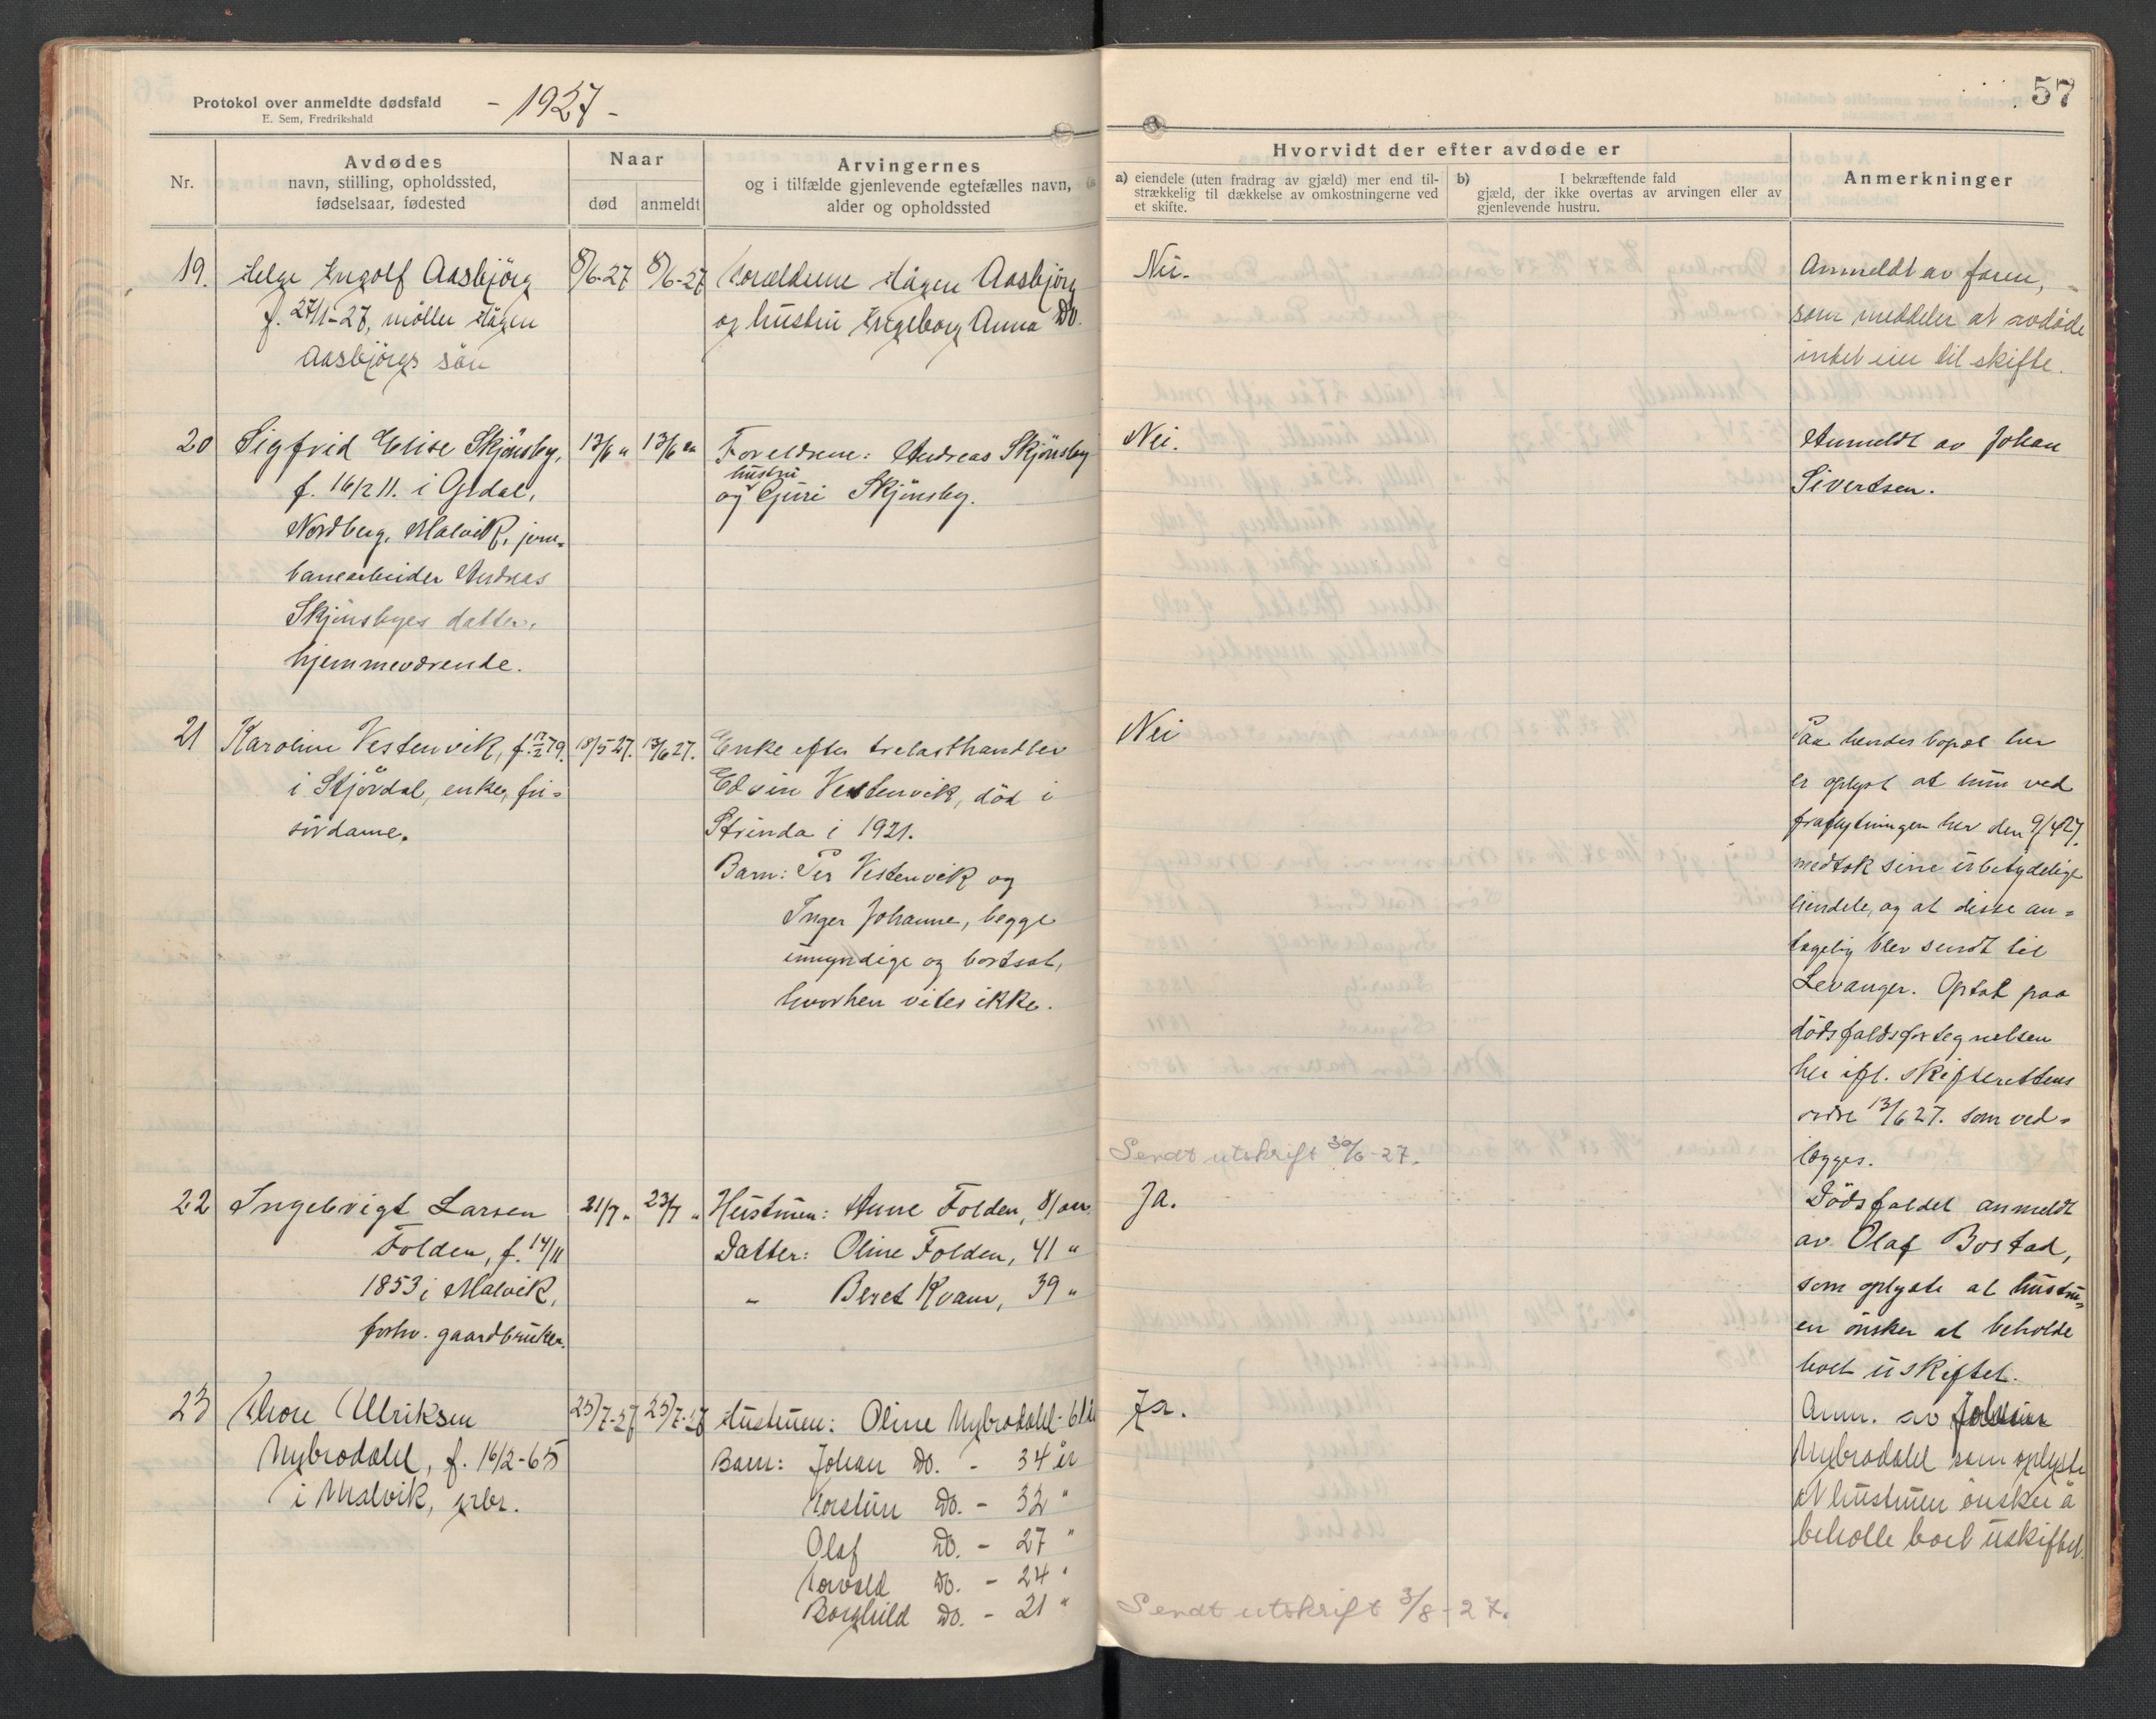 Protokol over anmeldte dødsfald
E. Sem, Fredrikshald
- 1927 -
57
Nr.
Avdødes
navn, stilling, opholdssted,
fødselsaar, fødested
Naar
død
anmeldt
Arvingernes
og i tilfælde gjenlevende egtefælles navn,
alder og opholdssted
Hvorvidt der efter avdøde er
a) eiendele (uten fradrag av gjæld) mer end til-
strækkelig til dækkelse av omkostningerne ved
et skifte.
b) I bekræftende fald
gjæld, der ikke overtas av arvingen eller av
gjenlevende hustru.
Anmerkninger
19.
Helge Ingolf Aasbjörg
f. 27/1-27, møller Hågen
Aasbjörgs sön
8/6-27
8/6-27
Forældrene Hågen Aasbjörg
og hustru Ingeborg Anna Do.
Nei.
Anmeldt av faren,
som meddeler at avdøde
intet eier til skifte.
20
Sigfrid Elise Skjönsby,
f. 16/2 11. i Opdal,
Nordberg, Malvik, jern-
banearbeider Andreas
Skjönsbyes datter,
hjemmeværende.
13/6 "
13/6 "
Foreldrene: Andreas Skjönsby
hustru
og Guri Skjönsby.
Nei.
Anmeldt av Johan
Sivertsen.
21
Karoline Vestenvik, f. 17/2 79.
i Stjördal, enke, fri-
sördame.
18/5 27.
13/6 27.
Enke efter trelasthandler
Edvin Vestenvik, död i
Strinda i 1921.
Barn: Per Vestenvik og
Inger Johanne, begge
umyndige og bortsat,
hvorhen vites ikke.
Nei
Paa hendes bopæl her
er oplyst at hun ved
fraflytningen her den 9/4 27.
medtok sine ubetydelige
eiendele, og at disse an-
tagelig blev sendt til
Levanger. Optat paa
dödsfaldsfortegnelsen
her ifl. skifterettens
ordre 13/6 27. som ved-
lægges.
Sendt utskrift 30/6-27.
22
Ingebrigt Larsen
Folden, f. 14/11
1853 i Malvik,
forhv. gaardbruker.
21/7 "
23/7 "
Hustruen: Anne Folden, 81 aar.
Datter: Oline Folden, 41 "
" Beret Kvam, 39 "
Ja.
Dödsfaldet anmeldt
av Olaf Bostad,
som oplyste at hustru-
en önsker at beholde
boet uskiftet.
23
Thore Ulriksen
Mybrodahl, f. 16/2-65
i Malvik, gbr.
23/7-27
25/7-27
Hustruen: Oline Mybrodahl - 61 år
Barn: Johan Do. - 34 år
Torstein Do. - 32 "
Olaf Do. - 27 "
Torvald Do. - 24 "
Borghild Do. - 21 "
Ja.
Anm. av
Mybrodahl som oplyste
at hustruen önsker å
beholde boet uskiftet.
Sendt utskrift 3/8-27.